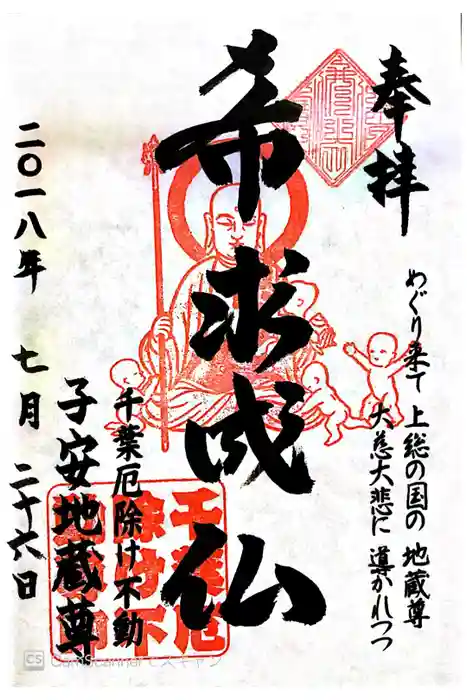 奉拝
めぐり来て 上総の国の 地蔵尊
大慈大悲に 導かれつつ
希求成仏
千葉厄除け不動
子安地蔵尊
二〇一八年 七月 二十六日
千葉厄
除け不
CS CamScanner でスキャン